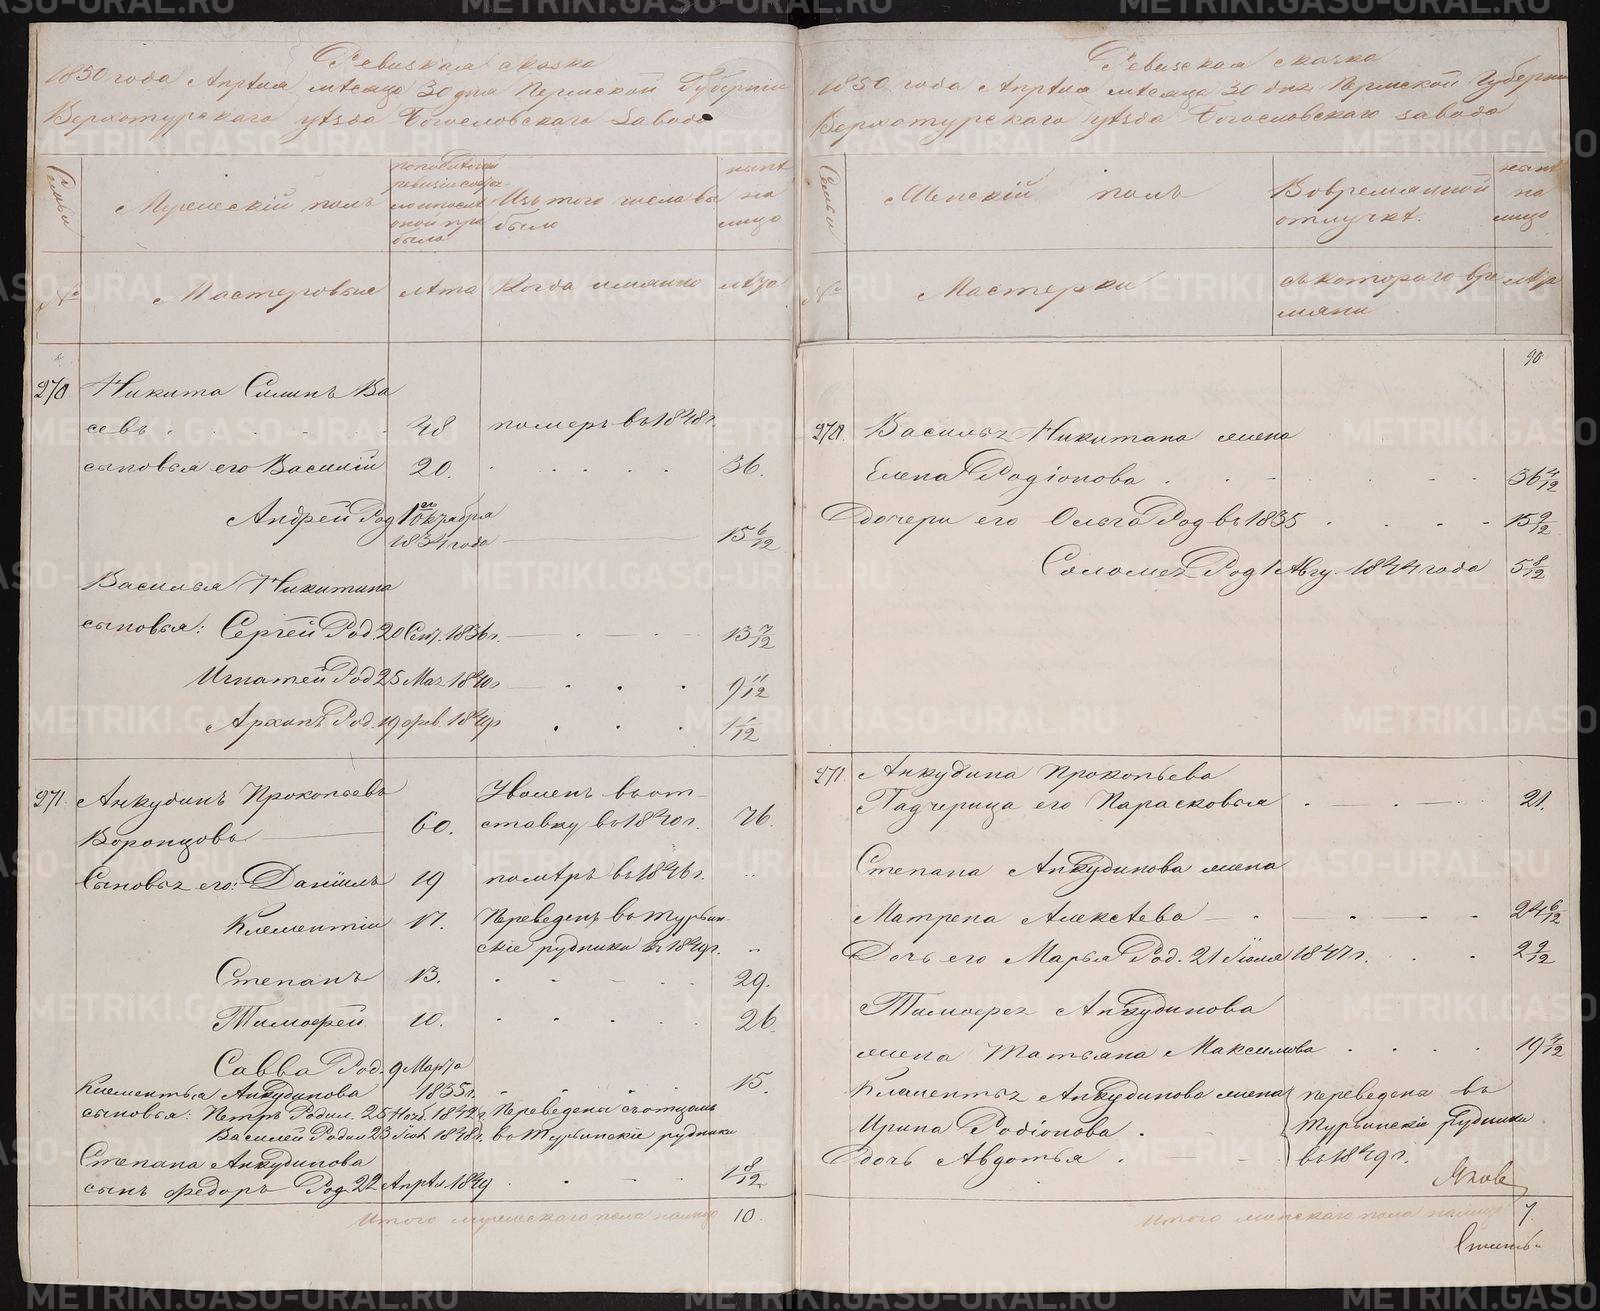 Ревизская сказка
1850 года Апрѣля мѣсяца 30 дня Пермской Губерніи
Верхотурскаго уѣзда Богословскаго завода
Семьи
Мужескій полъ
Изъ того числа вы
было
нынѣ
на
лицо
№
Мастеровые
лѣта
Когда именно
лѣта
270
Никита Силинъ Ва
севъ
48
померъ въ 1848 г.
сыновья его Василій
20.
36.
Андрей Род 1го Октября
1834 года
15 6/12
Василья Никитина
сыновья: Сергей Род. 20 Сент. 1836 г.
13 7/12
Игнатей Род 25 Мая 1840 г
9 11/12
Архипъ Род. 19 фев. 1849 г
1 1/12
271
Анкудинъ Прокопьевъ
Воронцовъ
60.
Уволенъ въ от
ставку въ 1840 г.
76.
Сыновья его: Даніилъ
19
помѣръ въ 1846 г.
Клементій
17.
Переведенъ въ Турьин
скіе рудники въ 1849 г.
Степанъ
13.
29.
Тимофей
10.
26.
Савва Род. 9 Марта
1835 г.
15.
Клементья Анкудинова
сыновья: Петръ Родил. 25 Нояб. 1842 г. Переведены съ отцомъ
Василей Родил 23 1848 г. въ Турьинскіе рудники
Степана Анкудинова
сынъ Федоръ Род 22 Апрѣл. 1849
1 8/12
Итого мужескаго пола налицо
10.
Ревизская сказка
1850 года Апрѣля мѣсяца 30 дня Пермской Губерніи
Верхотурскаго уѣзда Богословскаго завода
Семьи
Женскій полъ
Во временной
отлучкѣ.
нынѣ
на
лицо
№
Мастерки
съ котораго вре
мяни
лѣта
90
270.
Василья Никитина жена
Елена Родіонова
36 4/12
дочери его Ольга Род въ 1835
15 9/12
Соломея Род 1 Авгу. 1844 года
5 8/12
271.
Анкудина Прокопьева
Падчерица его Парасковья
21.
Степана Анкудинова жена
Матрена Алексѣева
24 6/12
Дочь его Марья Род. 21 Іюля 1847 г.
2 9/12
Тимофея Анкудинова
жена Татьяна Максимова
19 3/12
Клементья Анкудинова жена
Ирина Родіонова
дочь Авдотья
переведена въ
Турьинскіе Рудники
въ 1849 г.
Яковъ
Итого женскаго пола налицо
7.